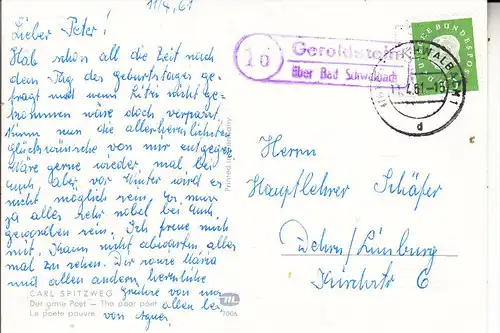 11/4.61
Lieber Peter!
Hab schon all die Zeit nach
dem Tag des Geburtstages ge-
fragt und wenn nicht ge-
kommen wäre doch verpasst.
Nimm nun die allerherzlichsten
Glückwünsche von mir entgegen.
Wäre gerne wieder mal bei
Euch, aber vor Winter wird es
nicht möglich sein. Es muss
ja alles sehr nobel bei Euch
geworden sein. Ich freue mich
mit. Kann nicht abwarten alles
mal zu sehen. Dir sowie Maria
und allen andern herzliche
Grüße von uns
allen bei
von Agnes
CARL SPITZWEG
Der arme Poet — The poor poet
Le poète pauvre
7006
Printed in Germany
16
Geroldstein
über Bad Schwalbach
DEUTSCHE BUNDESPOST
11.4.61-16
d
Herrn
Hauptlehrer Schäfer
Dehrn/Limburg
6